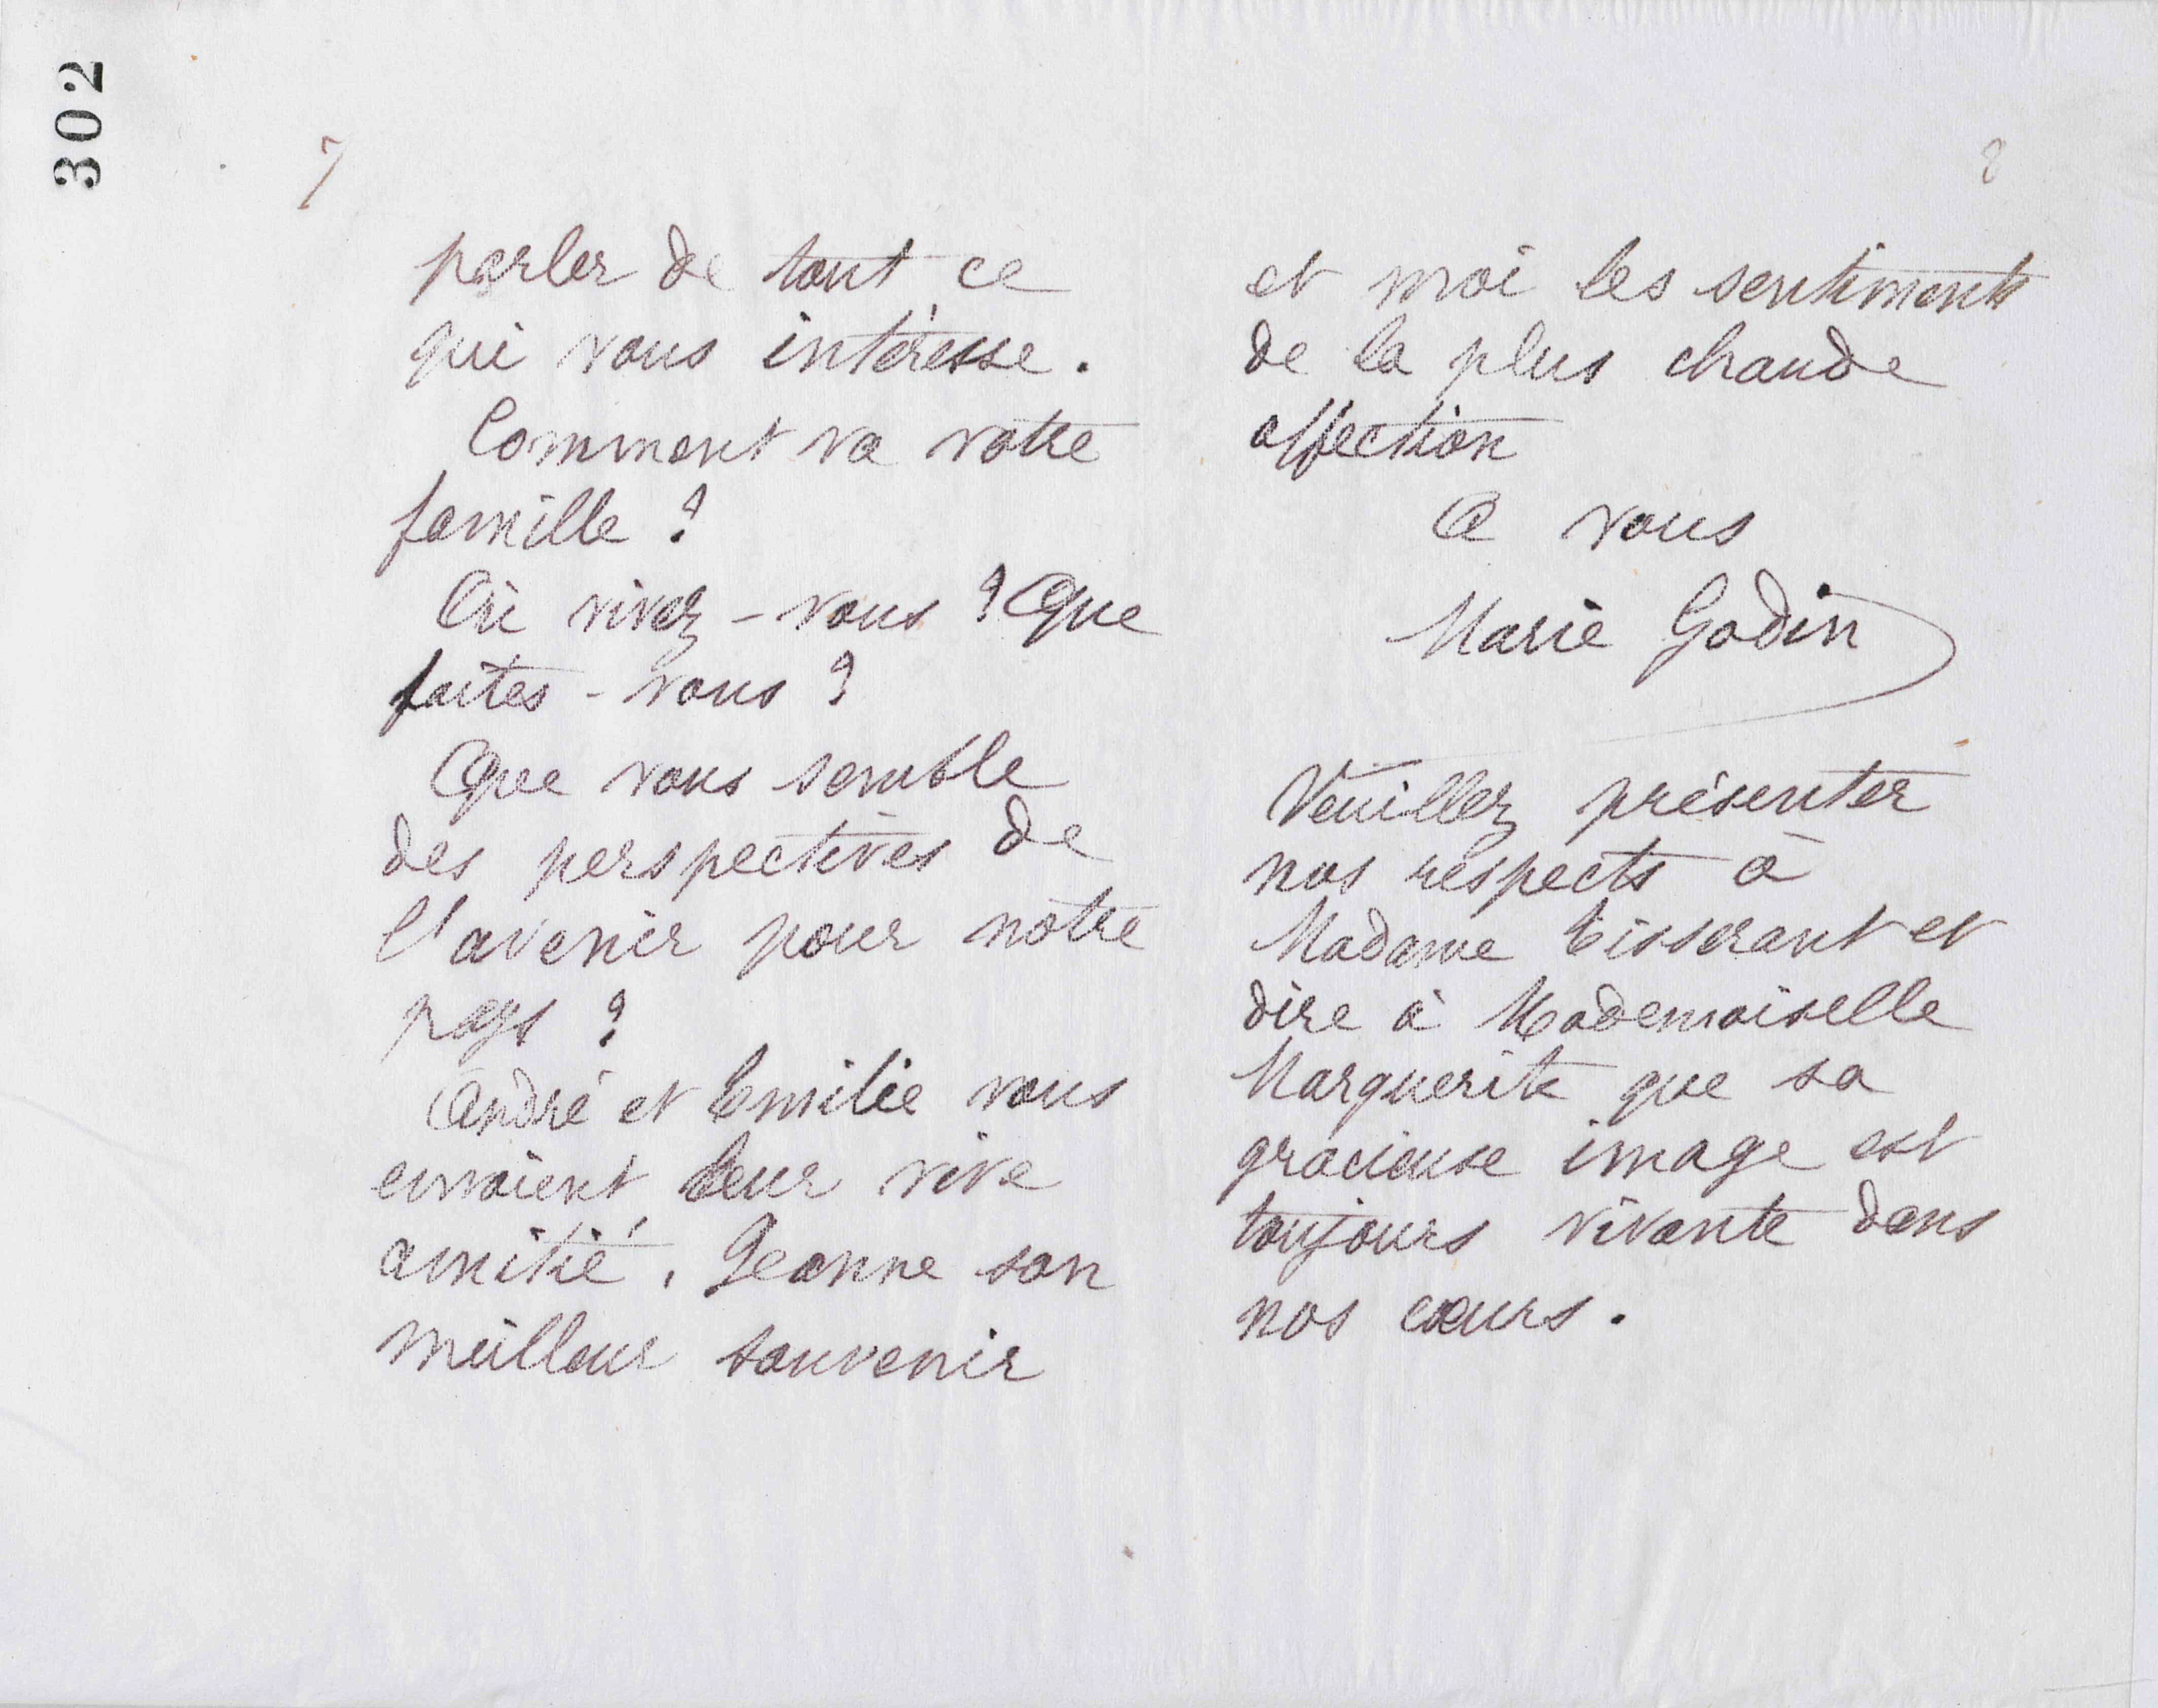 302
7
parler de tout ce
qui vous intéresse.
Comment va votre
famille ?
Où vivez-vous ? Que
faites-vous ?
Que vous semble
des perspectives de
l'avenir pour notre
pays ?
André et Emilie vous
envoient leur vive
amitié, Jeanne son
meilleur souvenir
8
et moi les sentiments
de la plus chaude
affection
A vous
Marie Godin
Veuillez présenter
nos respects à
Madame Tisserant et
dire à Mademoiselle
Marguerite que sa
gracieuse image est
toujours vivante dans
nos cœurs.